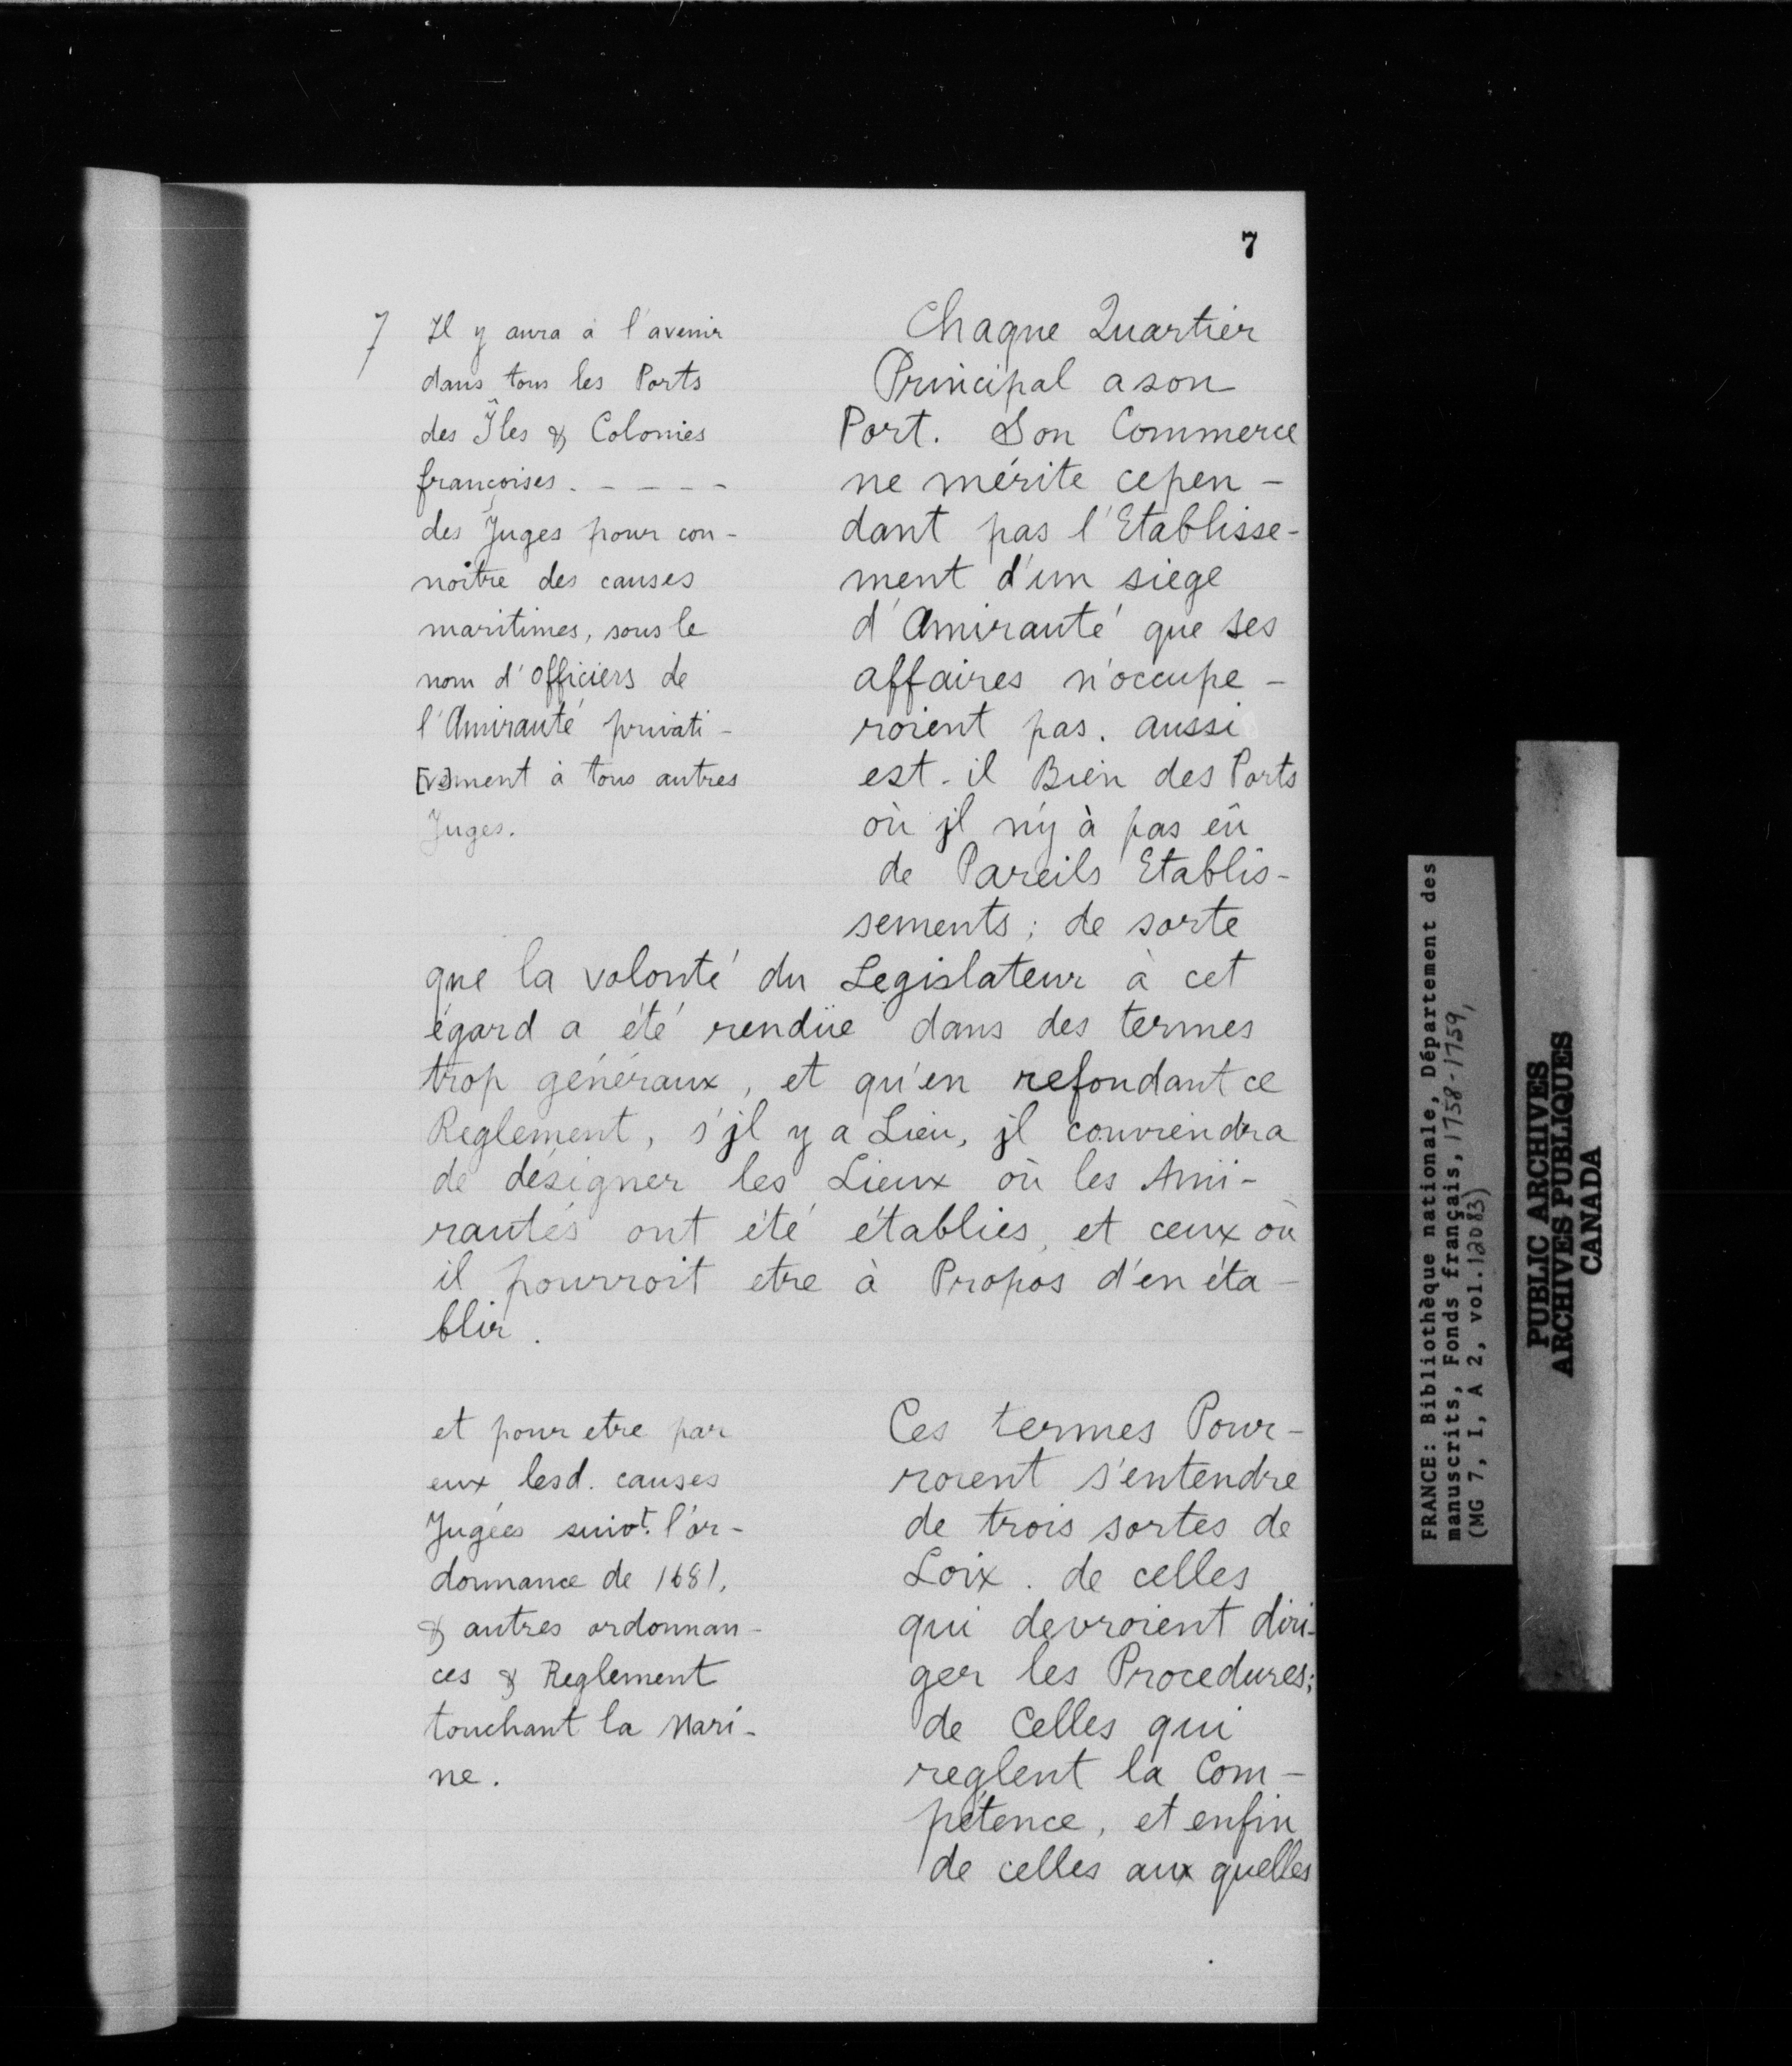 7
7 Il y aura à l'avenir
dans tous les Ports
des Îles & Colonies
françoises. - - - - -
des Juges pour con-
noître des causes
maritimes, sous le
nom d'officiers de
l'Amirauté privati-
[ve]ment à tous autres
Juges.
Chaque Quartier
Principal a son
Port. Son Commerce
ne mérite cepen-
dant pas l'Etablisse-
ment d'un siege
d'Amirauté que ses
affaires n'occupe-
roient pas. aussi
est-il Bien des Ports
où jl n'y à pas eû
de Pareils Etablis-
sements; de sorte
que la volonté du Legislateur à cet
égard a été rendüe dans des termes
trop généraux, et qu'en refondant ce
Reglement, s'jl y a Lieu, jl conviendra
de désigner les Lieux où les Ami-
rautés ont été établies, et ceux où
il pourroit etre à Propos d'en éta-
blir.
et pour etre par
eux lesd. causes
Jugées suivt. l'or-
donnance de 1681,
& autres ordonnan-
ces & Reglement
touchant la Mari-
ne.
Ces termes Pour-
roient s'entendre
de trois sortes de
Loix. de celles
qui devroient diri-
ger les Procedures;
de Celles qui
reglent la Com-
pétence, et enfin
de celles aux quelles
FRANCE: Bibliothèque nationale, Département des
manuscrits, Fonds français, 1758-1759,
(MG 7, I, A 2, vol. 12083)
PUBLIC ARCHIVES
ARCHIVES PUBLIQUES
CANADA